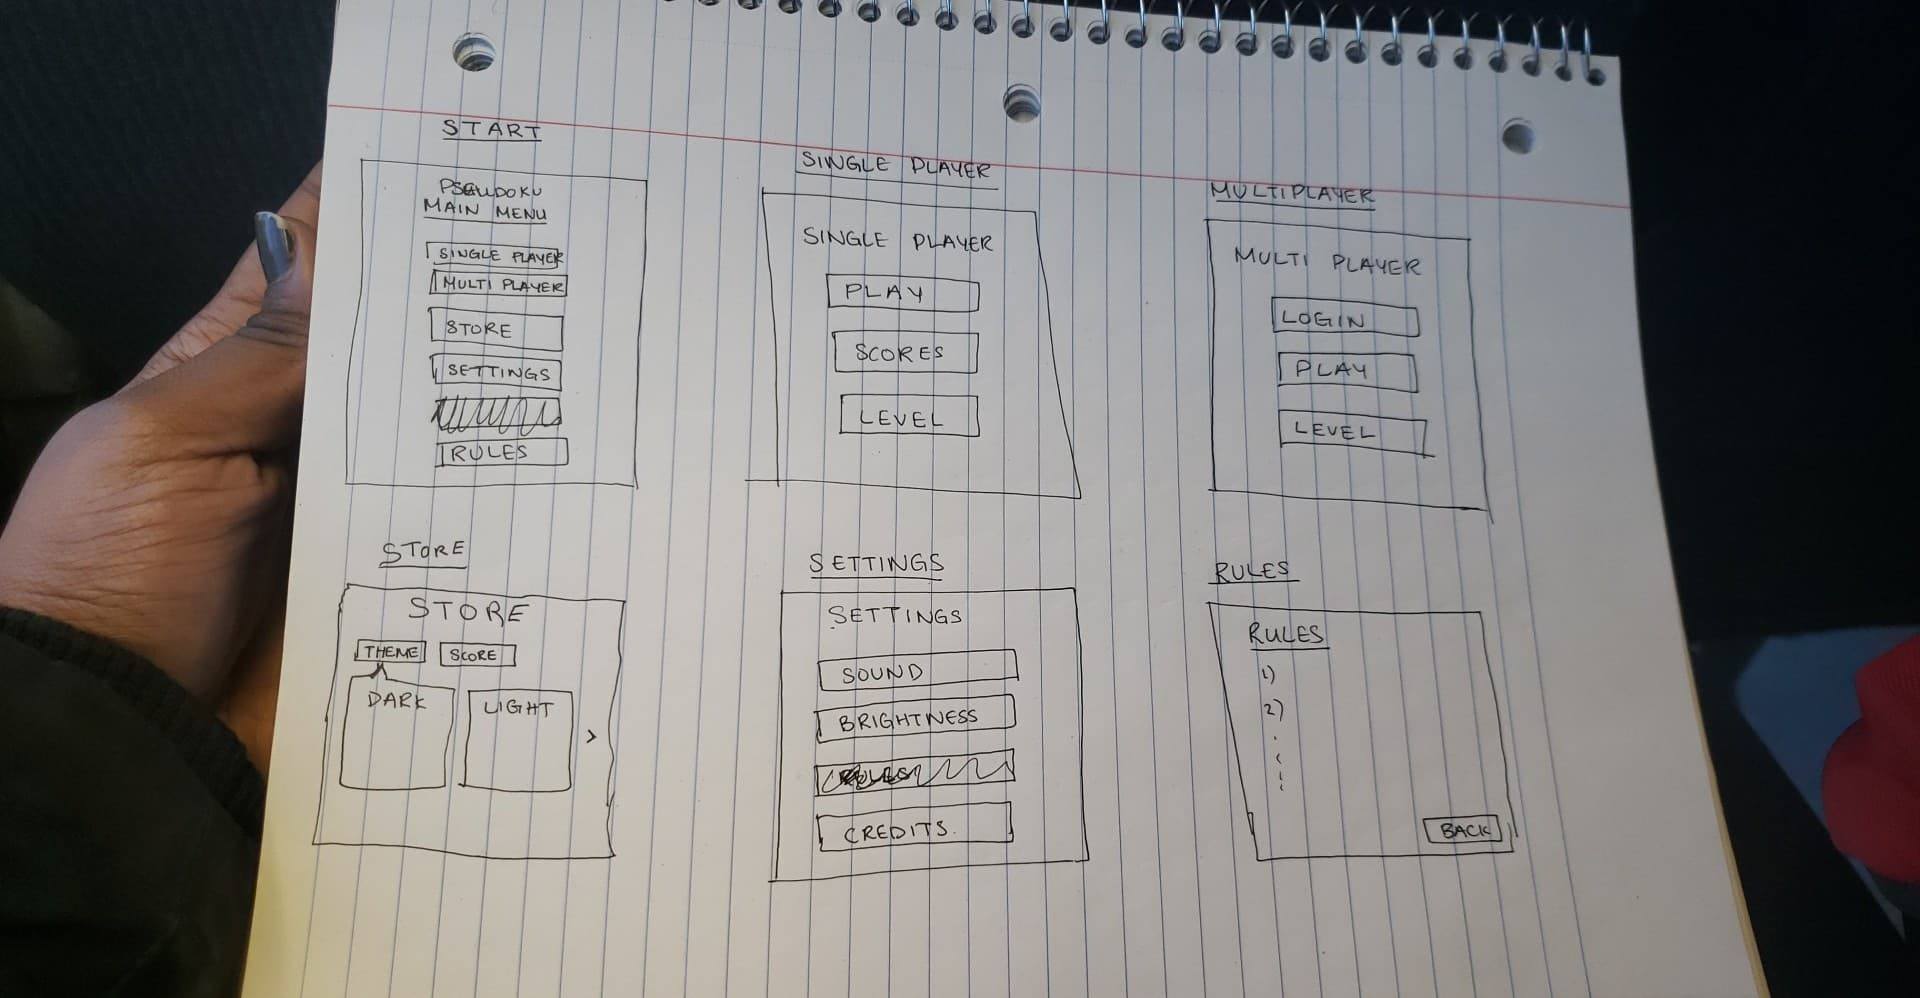 START
PSEUDOKU
MAIN MENU
SINGLE PLAYER
MULTI PLAYER
STORE
SETTINGS
RULES
SINGLE PLAYER
SINGLE PLAYER
PLAY
SCORES
LEVEL
MULTIPLAYER
MULTI PLAYER
LOGIN
PLAY
LEVEL
STORE
STORE
THEME SCORE
DARK LIGHT >
SETTINGS
SETTINGS
SOUND
BRIGHTNESS
CREDITS.
RULES
RULES
1)
2)
BACK